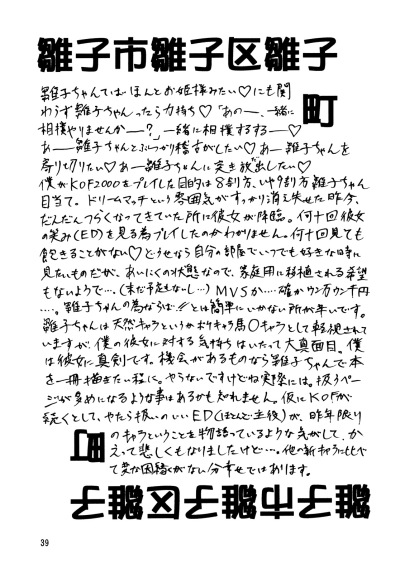 雛子市雛子区雛子
町
雛子ちゃんてばほんとお姫様みたい♡にも関
わらず雛子ちゃんったら力持ち♡「あの—、一緒に
相撲やりませんか—?」一緒に相撲するする—♡
あ—雛子ちゃんとぶつかり稽古がしたい♡あ—雛子ちゃんを
寄り切りたい♡あ—雛子ちゃんに突き放(出)したい♡
僕がKOF2000をプレイした目的は8割方、いや9割方雛子ちゃん
目当て。ドリームマッチという雰囲気がすっかり消え失せた昨今、
だんだんつらくなってきていた所に彼女が降臨。何十回彼女
の笑み(ED)を見る為プレイしたのかわかりません。何十回見ても
飽きることがない♡どうせなら自分の部屋でいつでも好きな時に
見たいものだが、あいにくの状態なので、家庭用に移植される希望
もないようで…。(まだ予定なし…)MVSか…。確かウン万ウン千円
…。雛子ちゃんの為ならば!!とは簡単にいかない所が辛いです。
雛子ちゃんは天然キャラというかお〇キャラとして軽視されて
いますが、僕の彼女に対する気持ちはいたって大真面目。僕
は彼女に真剣です。機会があるものなら雛子ちゃんで本
を一冊描きたい程に。やらないですけどね実際には。扱うペー
ジが多めになるような事はあるかも知れません。仮にKOFが
続くとして、やたら扱いのいいED(ほとんど主役)が、昨年限り
のキャラということを物語っているような気がして、か
えって悲しくもなりましたけど…。他の新キャラに比べ
て変な因縁がない分幸せではあります。
町
雛子市雛子区雛子
39